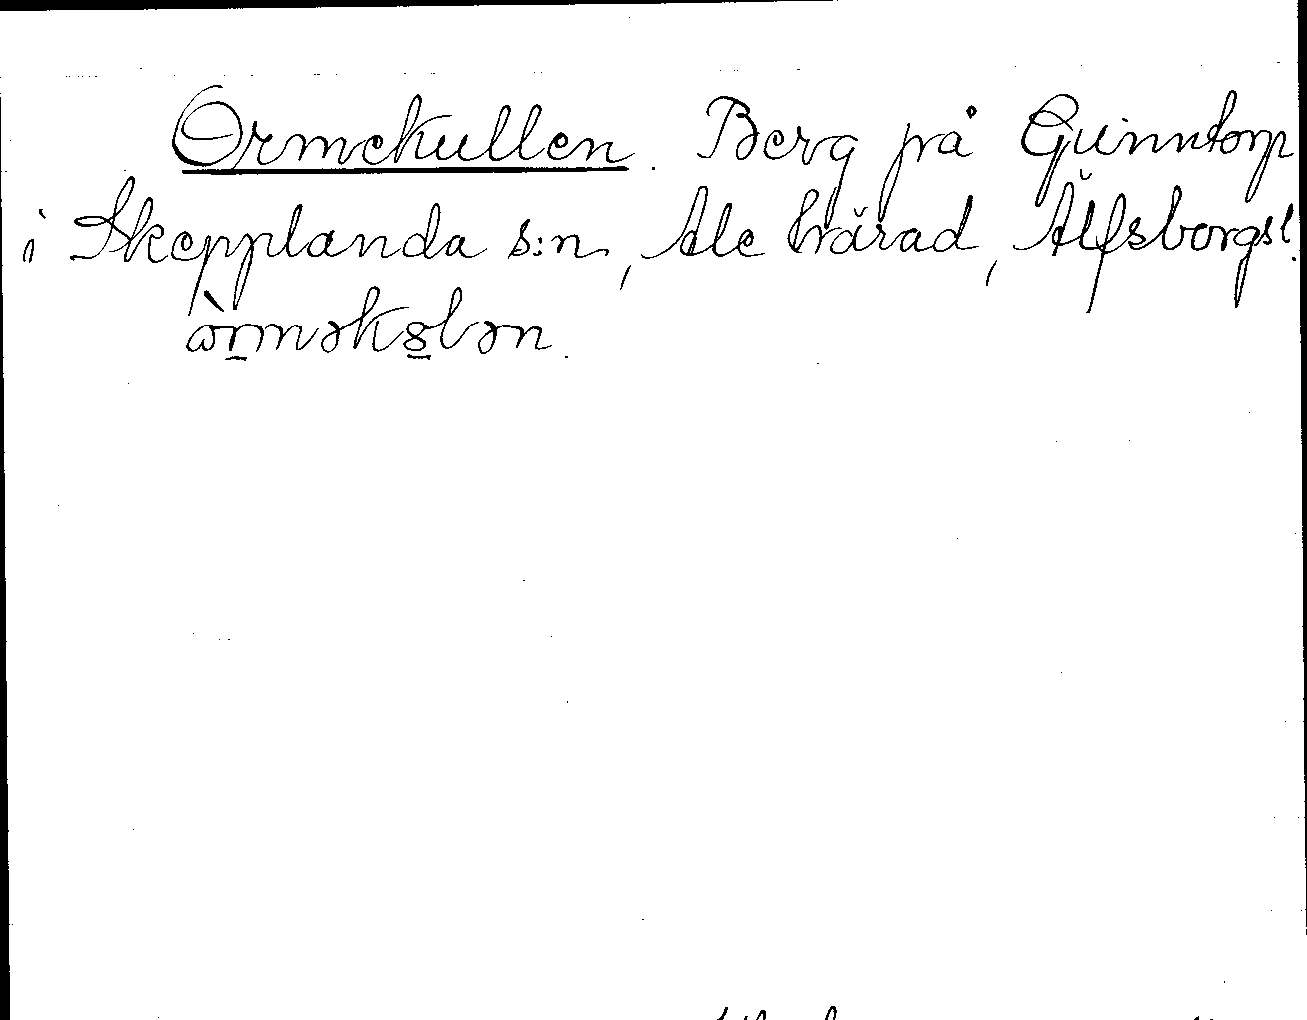 Ormekullen. Berg på Gunntorp
i Skepplanda s:n, Ale härad, Älfsborgsl.
ɷ̀rməks̲lən.